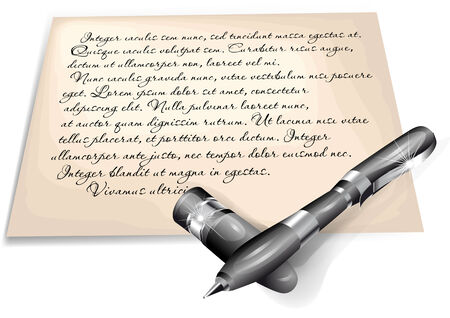 Integer iaculis sem nunc, sed tincidunt massa egestas at.
Quisque iaculis volutpat sem. Curabitur risus augue,
dictum at ullamcorper non, laoreet vel mi.
Nunc iaculis gravida nunc, vitae vestibulum nisi posuere
eget. Lorem ipsum dolor sit amet, consectetur
adipiscing elit. Nulla pulvinar laoreet nunc,
at auctor quam dignissim rutrum. Ut lacinia nisi vitae
tellus placerat, et porttitor orci dictum. Integer
ullamcorper ante justo, nec tempor dolor euismod nec.
Integer blandit ut magna in egestas.
Vivamus ultrici